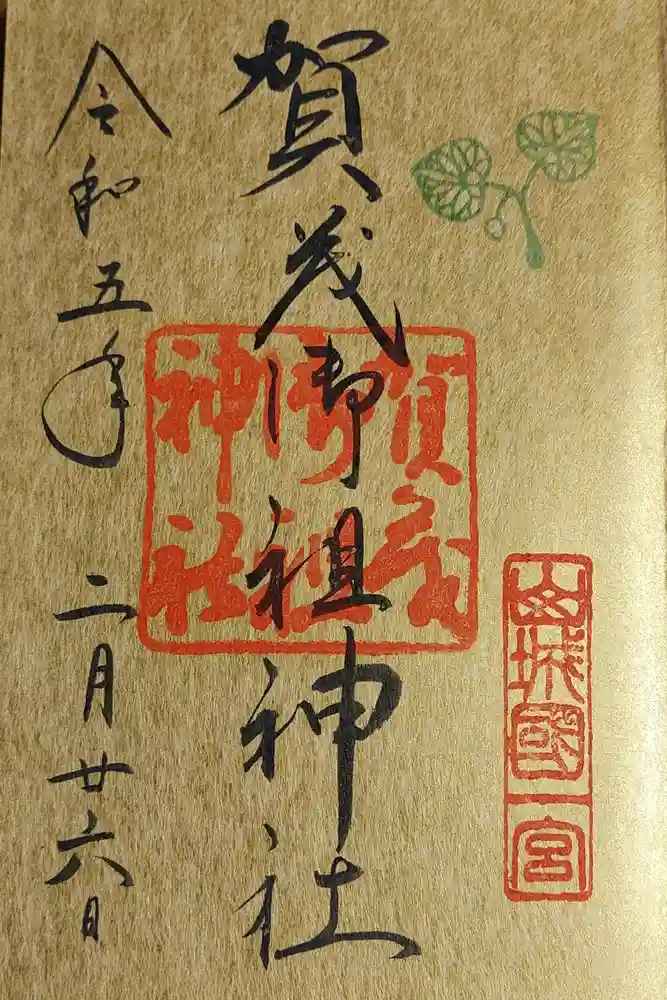 山城國一宮
賀茂御祖神社
賀茂
御祖
神社
令和五年 二月廿六日